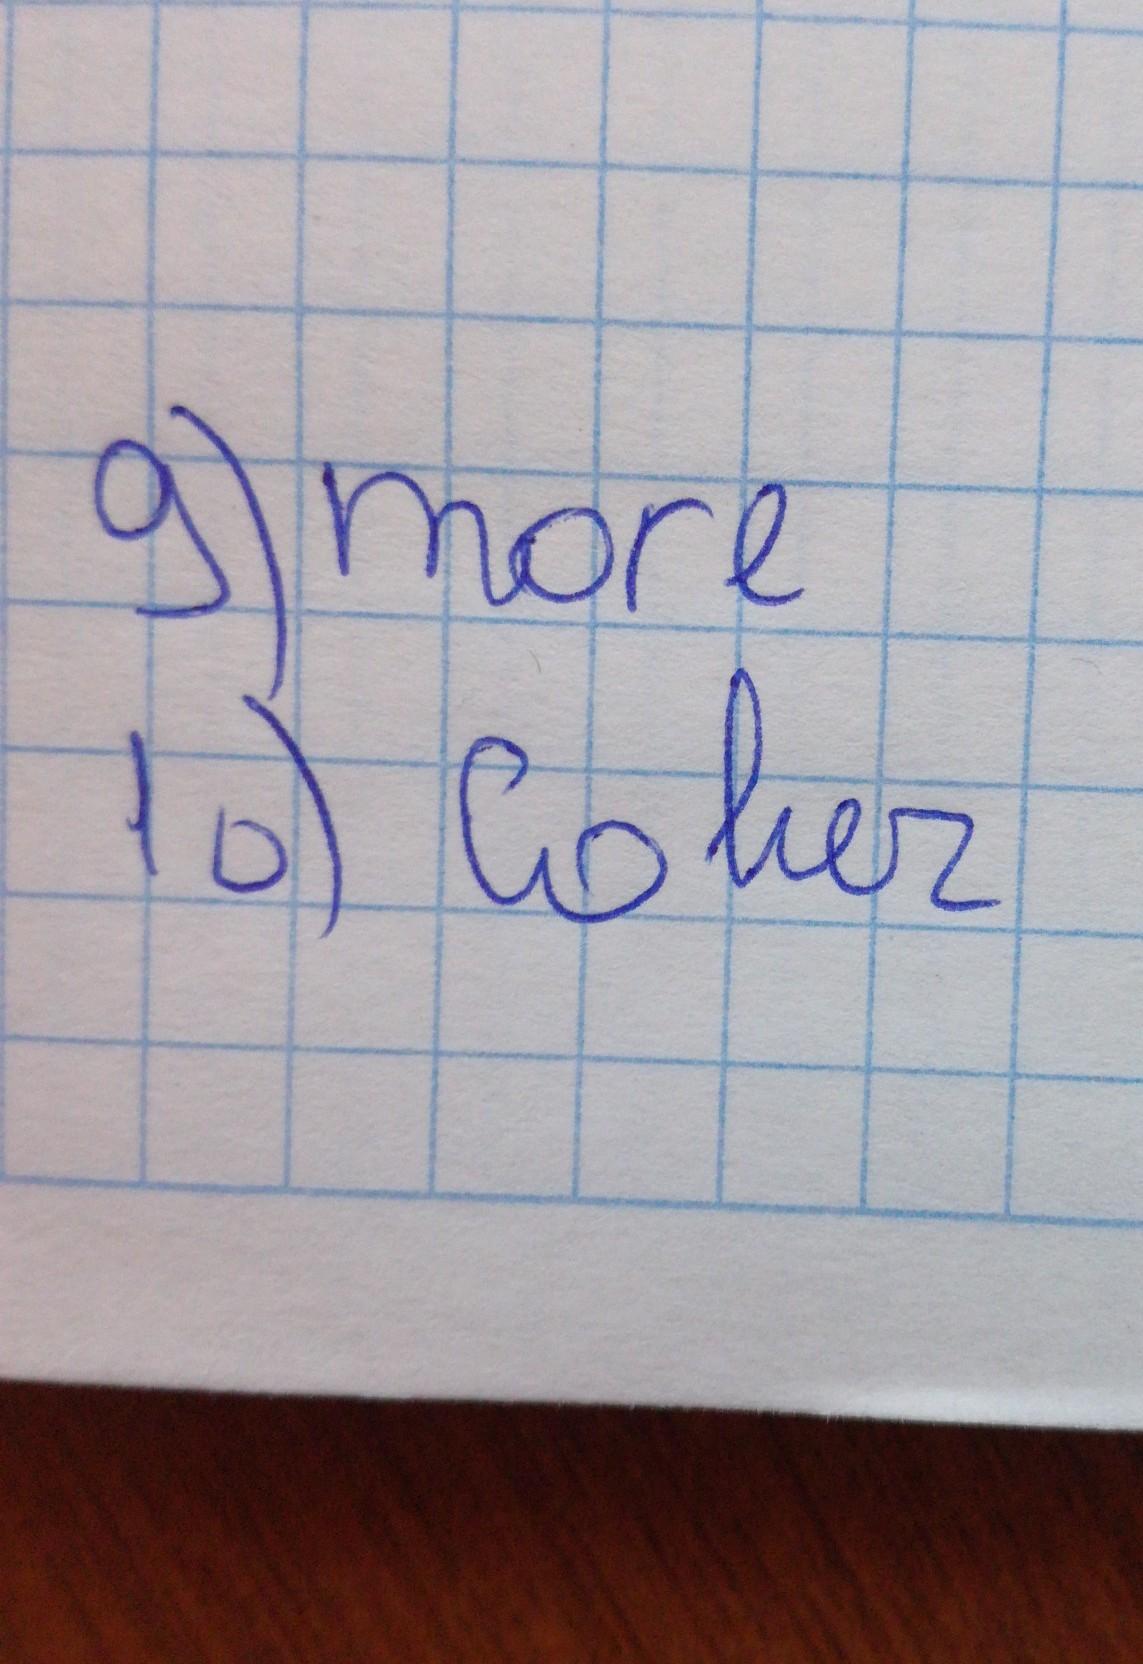 9) more
10) Coher